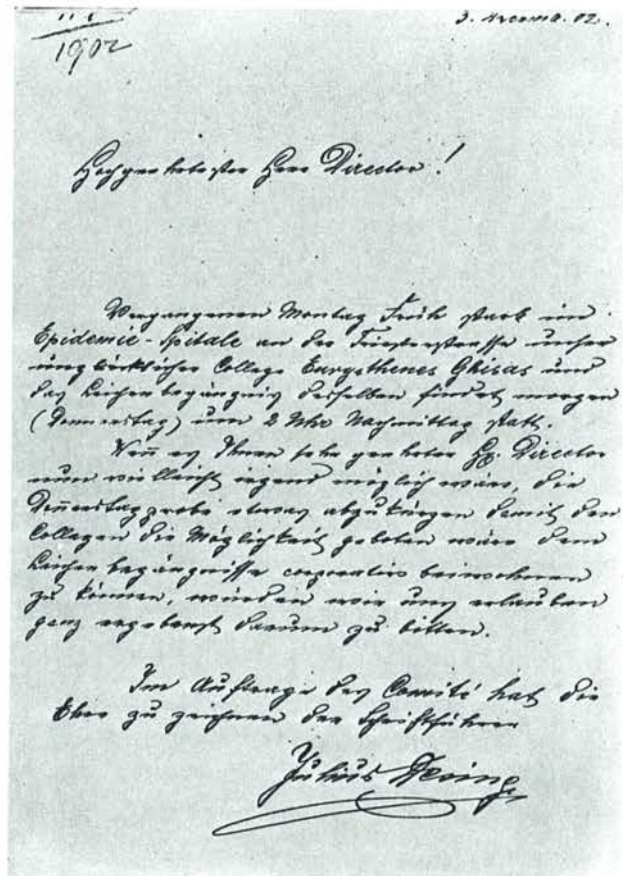 1902
Hochgeehrtester Herr Director!
Vergangenen Montag Früh starb im
Epidemie-Spitale an der Triesterstrasse unser
unglücklicher College Eurysthenes Ghisas und
das Leichenbegängnis desselben findet morgen
(Donnerstag) um 2 Uhr Nachmittag statt.
Wenn es Ihnen sehr geehrter Director
nun vielleicht irgend möglich wäre, die
Donnerstagprobe etwas abzukürzen damit den
Collegen die Möglichkeit geboten wäre dem
Leichenbegängnisse corporativ beiwohnen
zu können, würden wir uns erlauben
ganz ergebenst darum zu bitten.
Im Auftrage des Comité hat die
Ehre zu zeichnen der Schriftführer
Julius